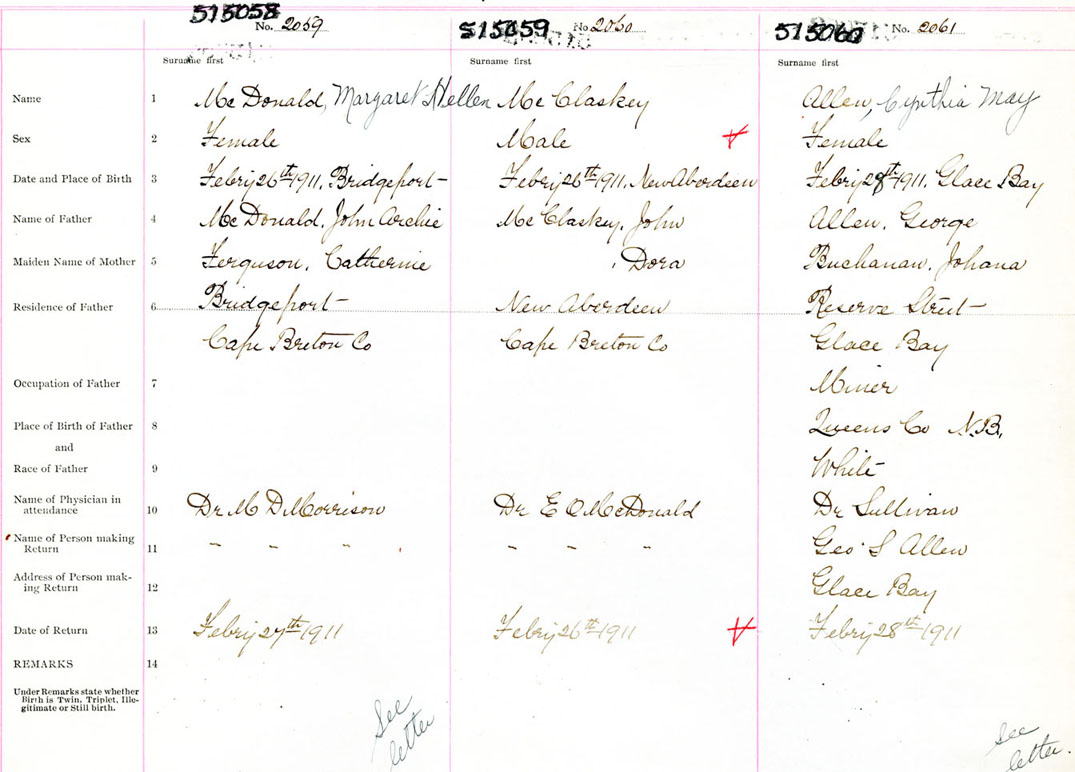 515058 515059 515060
No. 2059 No. 2060 No. 2061
Surname first Surname first Surname first
Name 1 Mc Donald, Margaret Hellen Mc Claskey Allen, Cynthia May
Sex 2 Female Male Female
Date and Place of Birth 3 Febry 26th 1911, Bridgeport Febry 26th 1911, New Aberdeen Febry 28th 1911, Glace Bay
Name of Father 4 Mc Donald, John Archie Mc Claskey, John Allen, George
Maiden Name of Mother 5 Ferguson, Catherine , Dora Buchanan, Johana
Residence of Father 6 Bridgeport New Aberdeen Reserve Street
Cape Breton Co Cape Breton Co Glace Bay
Occupation of Father 7 Miner
Place of Birth of Father 8 Queens Co N.B.
and
Race of Father 9 White
Name of Physician in
attendance 10 Dr M D Morrison Dr E O McDonald Dr Sullivan
Name of Person making
Return 11 " " " " " " Geo S Allen
Address of Person mak-
ing Return 12 Glace Bay
Date of Return 13 Febry 27th 1911 Febry 26th 1911 Febry 28th 1911
REMARKS 14
Under Remarks state whether
Birth is Twin, Triplet, Ille-
gitimate or Still birth.
See
letter
See
letter.